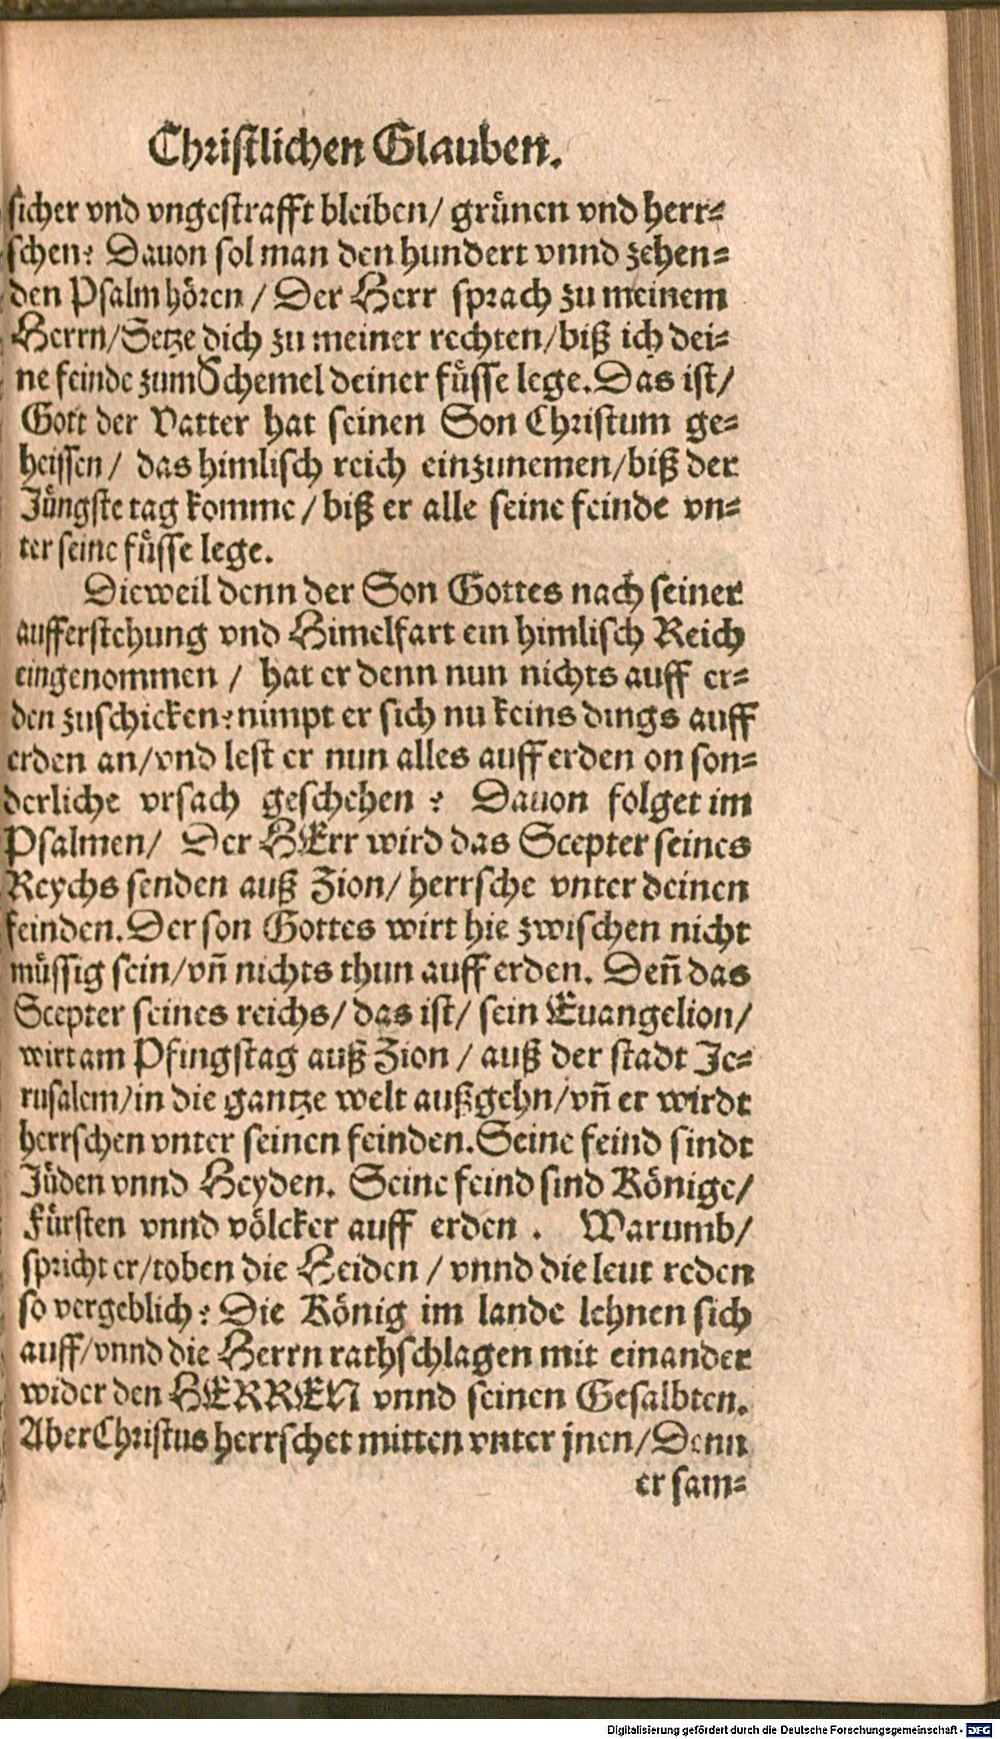 Christlichen Glauben.
sicher vnd vngestrafft bleiben/ grünen vnd herr=
schen? Dauon sol man den hundert vnnd zehen=
den Psalm hören / Der Herr sprach zu meinem
Herrn/Setze dich zu meiner rechten/biß ich dei=
ne feinde zum Schemel deiner füsse lege. Das ist/
Gott der Vatter hat seinen Son Christum ge=
heissen/ das himlisch reich einzunemen/biß der
Jüngste tag komme/ biß er alle seine feinde vn=
ter seine füsse lege.
Dieweil denn der Son Gottes nach seiner
aufferstehung vnd Himelfart ein himlisch Reich
eingenommen / hat er denn nun nichts auff er=
den zuschicken? nimpt er sich nu keins dings auff
erden an/vnd lest er nun alles auff erden on son=
derliche vrsach geschehen ? Dauon folget im
Psalmen/ Der HErr wird das Scepter seines
Reychs senden auß Zion/ herrsche vnter deinen
feinden. Der son Gottes wirt hie zwischen nicht
müssig sein/vñ nichts thun auff erden. Deñ das
Scepter seines reichs/ das ist/ sein Euangelion/
wirt am Pfingstag auß Zion / auß der stadt Je=
rusalem/in die gantze welt außgehn/vñ er wirdt
herrschen vnter seinen feinden. Seine feind sindt
Jüden vnnd Heyden. Seine feind sind Könige/
Fürsten vnnd völcker auff erden . Warumb/
spricht er/toben die Heiden / vnnd die leut reden
so vergeblich? Die König im lande lehnen sich
auff/vnnd die Herrn rathschlagen mit einander
wider den HERREN vnnd seinen Gesalbten.
Aber Christus herrschet mitten vnter jnen/Denn
er sam=
Digitalisierung gefördert durch die Deutsche Forschungsgemeinschaft - DFG